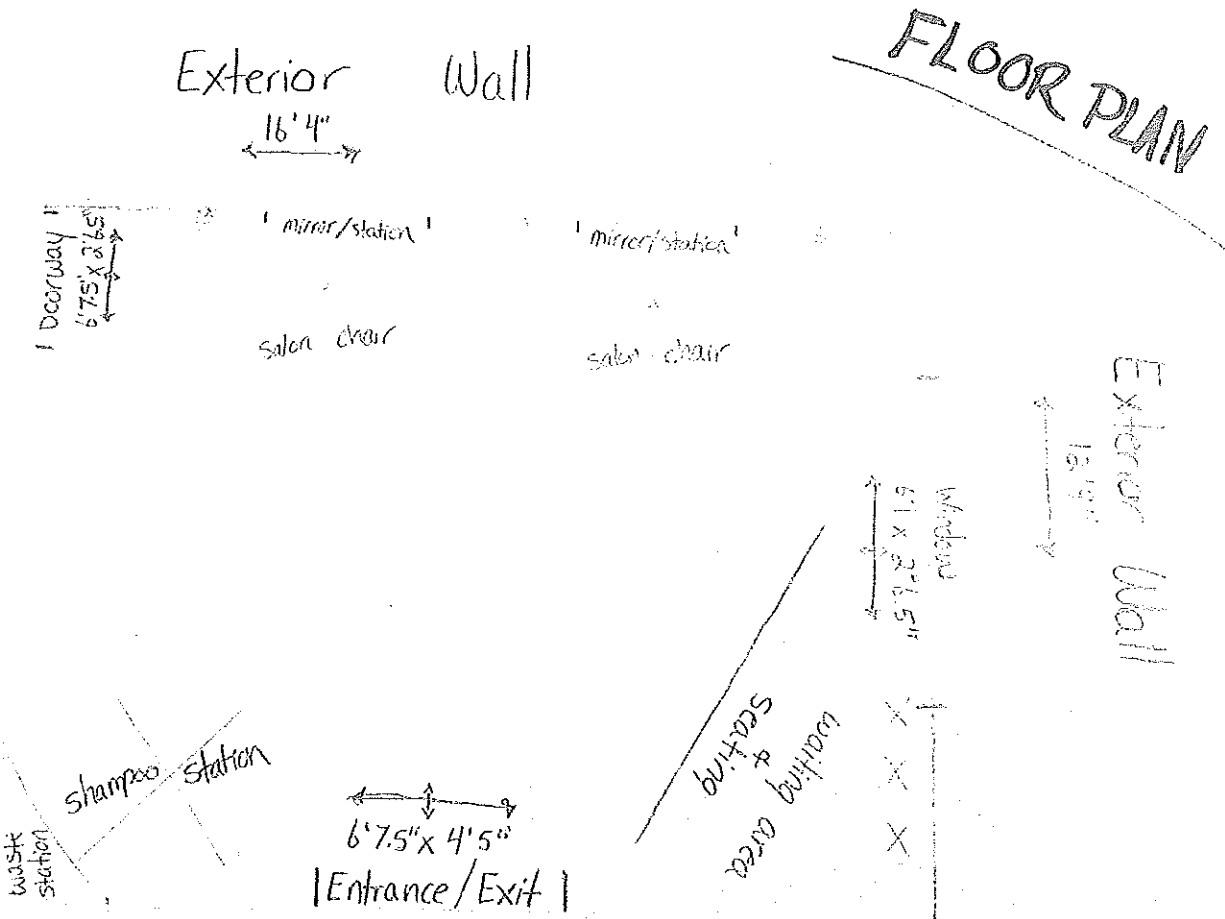 FLOOR PLAN
Exterior Wall
16'4"
| Doorway |
6'7.5" x 2'6.5"
' mirror/station '
' mirror/station '
salon chair
salon chair
Exterior Wall
Window
6'1 x 2'6.5"
waiting area
+
seating
X
X
X
shampoo station
waste
station
6'7.5" x 4'5"
| Entrance / Exit |